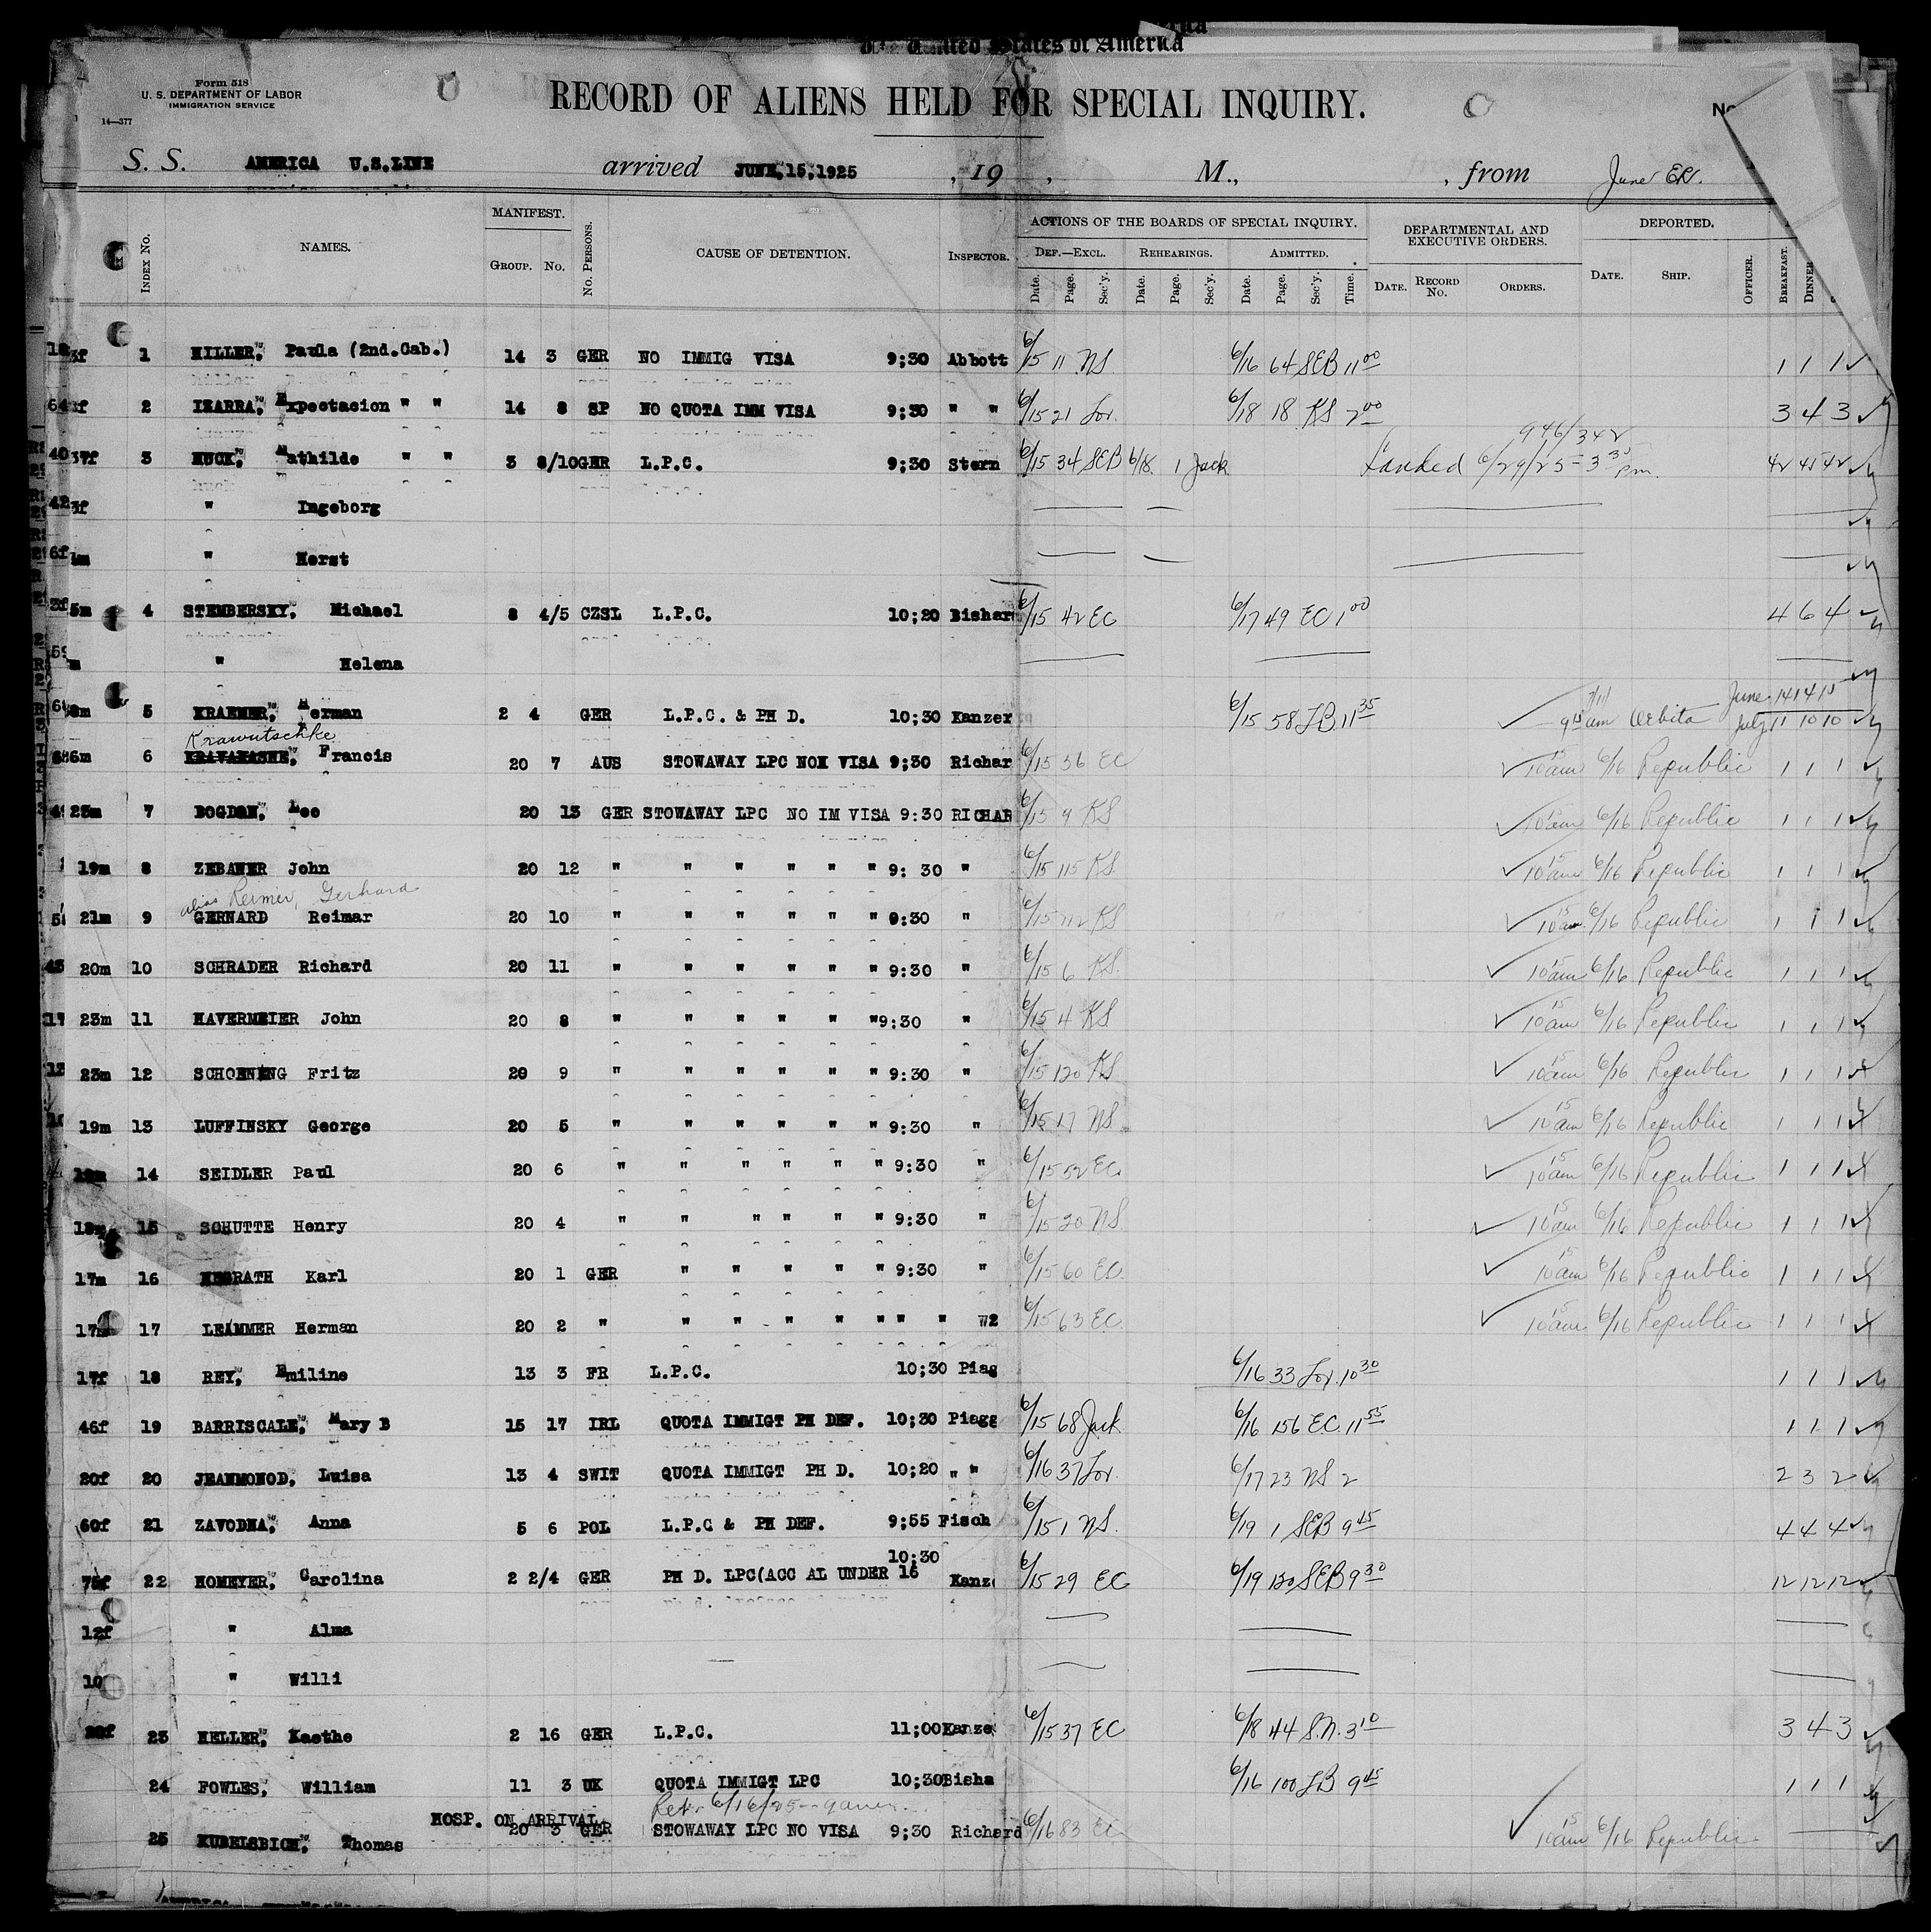 The United States of America
Form 518
U. S. DEPARTMENT OF LABOR
IMMIGRATION SERVICE
14—377
RECORD OF ALIENS HELD FOR SPECIAL INQUIRY.
No
S. S. AMERICA U.S.LINE arrived JUNE,15,1925 , 19 , M., , from June ER.
INDEX No. NAMES. MANIFEST. GROUP. No. No. PERSONS. CAUSE OF DETENTION. INSPECTOR. ACTIONS OF THE BOARDS OF SPECIAL INQUIRY. DEPARTMENTAL AND EXECUTIVE ORDERS. DEPORTED.
DEF.—EXCL. REHEARINGS. ADMITTED.
Date. Page. Sec'y. Date. Page. Sec'y. Date. Page. Sec'y. Time. DATE. RECORD No. ORDERS. DATE. SHIP. OFFICER. BREAKFAST. DINNER
1 HILLER, Paula (2nd.Cab.) 14 3 GER NO IMMIG VISA 9;30 Abbott 6/15 11 NS 6/16 64 SEB 11 00 1 1 1
2 IZARRA, Expectacion " " 14 8 SP NO QUOTA IMM VISA 9;30 " " 6/15 21 Lov. 6/18 18 KS 2 00 3 4 3
946/342
37f 3 HUCK, Mathilde " " 3 8/10 GER L.P.C. 9;30 Stern 6/15 34 SEB 6/18 1 Jack Landed 6/29/25 - 3 35 pm. 42 45 42
" Ingeborg
" Horst
4 STEMBERSKY, Michael 8 4/5 CZSL L.P.C. 10;20 Bishar 6/15 42 EC 6/17 49 EC 1 00 4 6 4
" Helena
5 KRAEMER, Herman 2 4 GER L.P.C. & PH D. 10;30 Kanzer 6/15 58 LB 11 35 9 15 am 7/11 June 14 14 15 July 11 10 10
Krawutschke
6 Francis 20 7 AUS STOWAWAY LPC NOI VISA 9;30 Richar 6/15 36 EC 10 15 am 6/16 Republic 1 1 1
23m 7 BOGDON, Leo 20 13 GER STOWAWAY LPC NO IM VISA 9:30 RICHAR 6/15 9 KS 10 15 am 6/16 Republic 1 1 1
19m 8 ZEBANER John 20 12 " " " " " " 9: 30 " 6/15 115 KS 10 15 am 6/16 Republic 1 1 1
alias Reimer, Gerhard
21m 9 GERNARD Reimar 20 10 " " " " " " 9:30 " 6/15 112 KS 10 15 am 6/16 Republic 1 1 1
20m 10 SCHRADER Richard 20 11 " " " " " " 9:30 " 6/15 6 KS. 10 15 am 6/16 Republic 1 1 1
23m 11 HAVERMEIER John 20 8 " " " " " " 9:30 " 6/15 4 KS 10 15 am 6/16 Republic 1 1 1
23m 12 SCHOENING Fritz 20 9 " " " " " " 9:30 " 6/15 120 KS 10 15 am 6/16 Republic 1 1 1
19m 13 LUFFINSKY George 20 5 " " " " " " 9:30 " 6/15 17 NS 10 15 am 6/16 Republic 1 1 1
14 SEIDLER Paul 20 6 " " " " " " 9:30 " 6/15 52 EC. 10 15 am 6/16 Republic 1 1 1
15 SCHUTTE Henry 20 4 " " " " " " 9:30 " 6/15 20 NS 10 15 am 6/16 Republic 1 1 1
17m 16 Karl 20 1 GER " " " " " 9:30 " 6/15 60 EC. 10 15 am 6/16 Republic 1 1 1
17m 17 LEAMMER Herman 20 2 " " " " " " " " 6/15 63 EC 10 15 am 6/16 Republic 1 1 1
17f 18 REY, Emiline 13 3 FR L.P.C. 10;30 Piag 6/16 33 Lov. 10 30 1 1 1
46f 19 BARRISCALE, Mary B 15 17 IRL QUOTA IMMIGT PH DEF. 10;30 Piagg 6/15 68 Jack 6/16 156 E.C. 11 55 1 1 1
20f 20 JEANMONOD, Luisa 13 4 SWIT QUOTA IMMIGT PH D. 10;20 " " 6/16 37 Lov. 6/17 23 NS 2 2 3 2
60f 21 ZAVODNA, Anna 5 6 POL L.P.C & PH DEF. 9;55 Fisch 6/15 1 NS. 6/19 1 SEB 9 45 4 4 4
10;30
75f 22 HOMEYER, Carolina 2 2/4 GER PH D. LPC(ACC AL UNDER 16 Kanze 6/15 29 EC 6/19 130 SEB 9 30 12 12 12
12f " Alma
10 " Willi
23 HELLER, Kaethe 2 16 GER L.P.C. 11;00 Kanze 6/15 37 EC 6/18 44 S.N. 3 10 3 4 3
24 FOWLES, William 11 3 UK QUOTA IMMIGT LPC 10;30 Bisha 6/16 100 LB 9 45 1 1 1
HOSP. ON ARRIVAL Ret. 6/16/25 - 9 am
25 KUBELSBICH, Thomas 20 3 GER STOWAWAY LPC NO VISA 9;30 Richard 6/16 83 EC 10 15 am 6/16 Republic